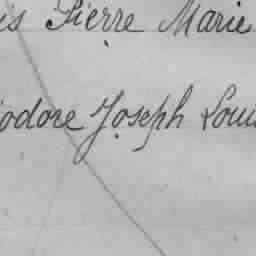 is Pierre Marie
odore Joseph Loui